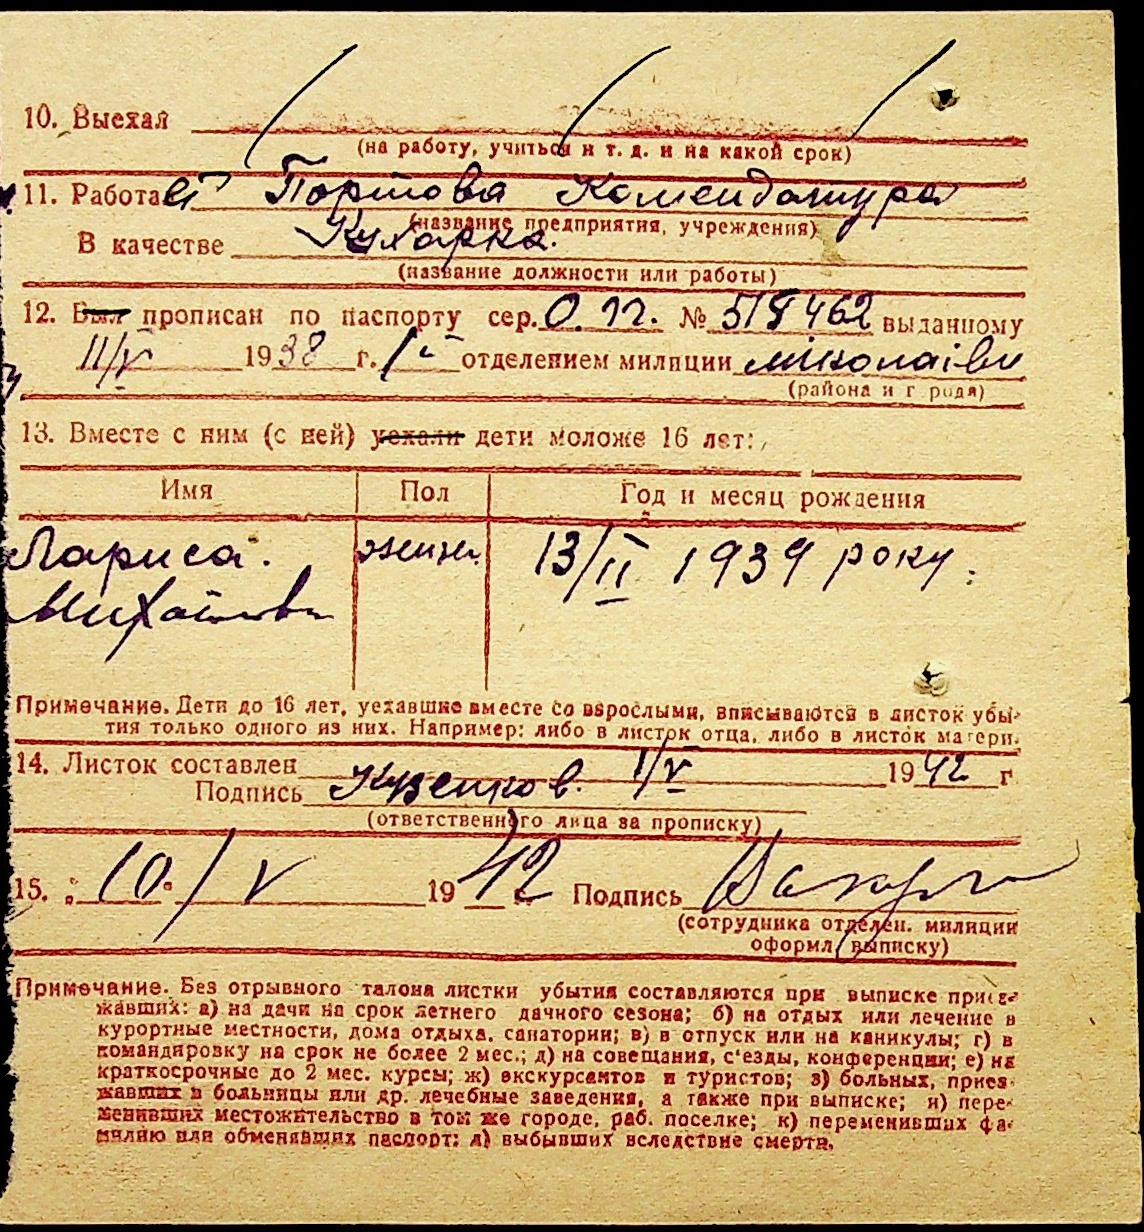 10. Выехал
(на работу, учиться и т. д. и на какой срок)
11. Работает Портова Комендатура
(название предприятия, учреждения)
В качестве Кухарка.
(название должности или работы)
12. Был прописан по паспорту сер. О.П. № 518462 выданному
11/V 1938 г. 1 отделением милиции миколаїв
(района и г рода)
13. Вместе с ним (с ней) уехали дети моложе 16 лет:
Имя Пол Год и месяц рождения
Лариса. женж. 13/II 1939 року.
Михайловн
Примечание. Дети до 16 лет, уехавшие вместе со взрослыми, вписываются в листок убы-
тия только одного из них. Например: либо в листок отца, либо в листок матери.
14. Листок составлен 1/V 1942 г
Подпись Кузенков.
(ответственного лица за прописку)
15. 10/V 1942 Подпись
(сотрудника отделен. милиции
оформл. выписку)
Примечание. Без отрывного талона листки убытия составляются при выписке приез-
жавших: а) на дачи на срок летнего дачного сезона; б) на отдых или лечение в
курортные местности, дома отдыха, санатории; в) в отпуск или на каникулы; г) в
командировку на срок не более 2 мес.; д) на совещания, с'езды, конференции; е) на
краткосрочные до 2 мес. курсы; ж) экскурсантов и туристов; з) больных, приез-
жавших в больницы или др. лечебные заведения, а также при выписке; и) пере-
менивших местожительство в том же городе, раб. поселке; к) переменивших фа-
милию или обменявших паспорт; л) выбывших вследствие смерти.